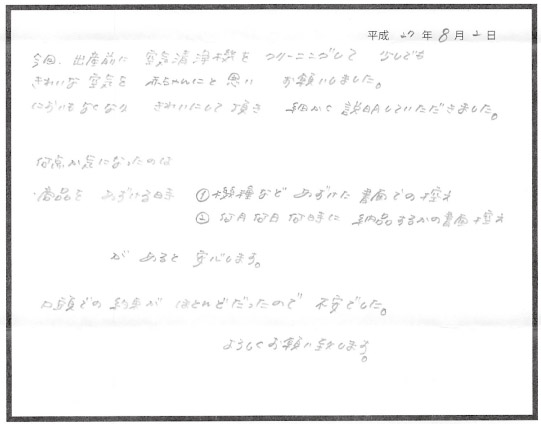 平成 27年 8月 2日
今回、出産前に 空気清浄機を クリーニングして 少しでも
きれいな空気を 赤ちゃんにと思い お願いしました。
においもなくなり きれいにして頂き 細かく説明していただきました。
何点か気になったのは
・商品を あずける時 ①機種など あずけた書面での控え
② 何月何日何時に 納品するかの書面控え
が あると 安心します。
口頭での約束が ほとんどだったので 不安でした。
よろしくお願い致します。